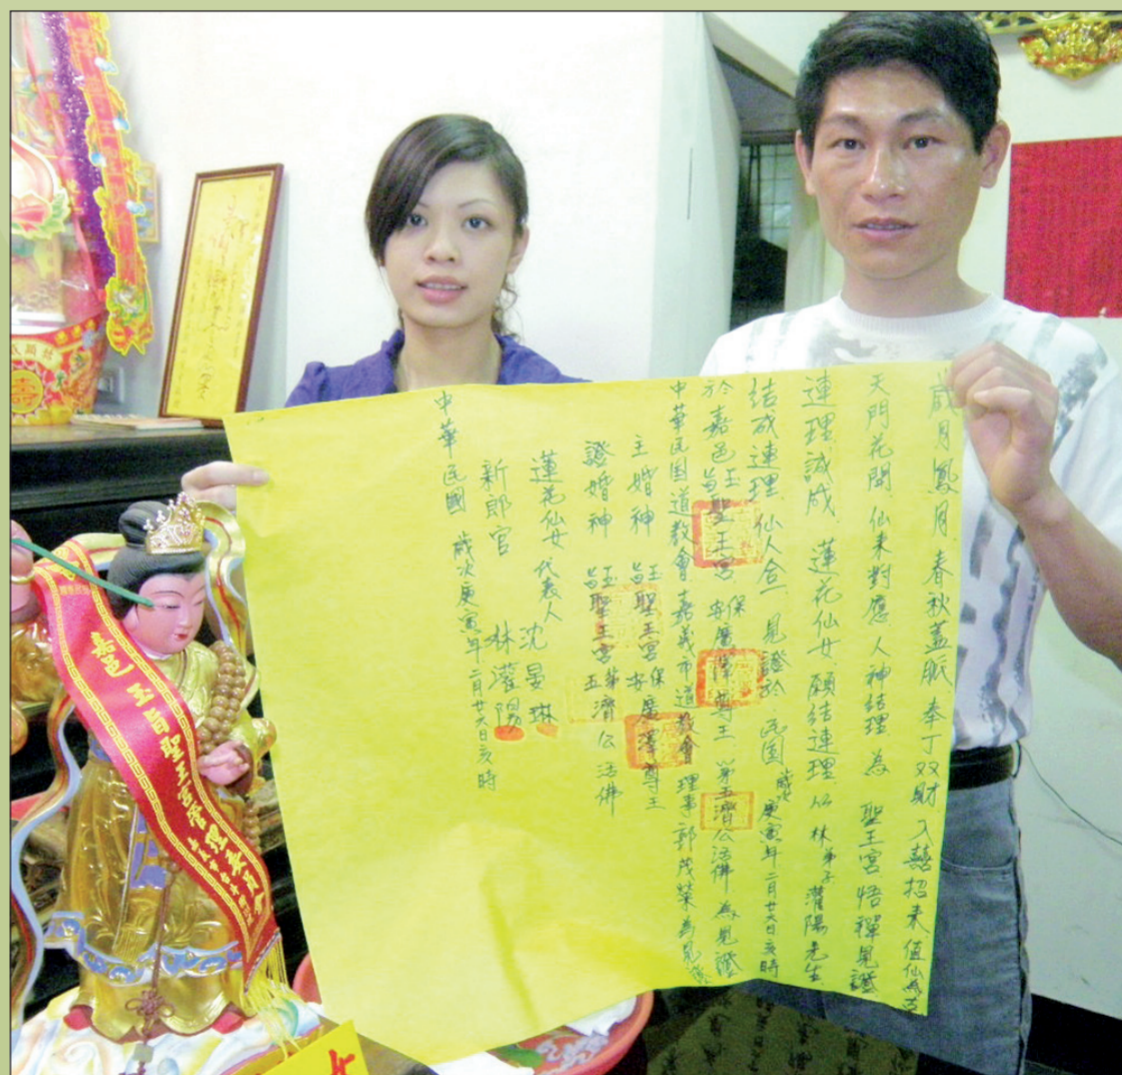 歲月鳳月春秋蓋脈奉丁双財入藝招來值仙為
天門花開仙來對應人神結理為 聖王宮悟禪見證
連理誠成 蓮花仙女願結連理 林弟子灌陽先生
結成連理仙人合一見證於民国歲次庚寅年二月廿六日亥時
於嘉邑玉旨聖王宮保安廣澤尊王第五濟公活佛為見證
中華民国道教會嘉義市道教會理事郭茂榮為見證
主婚神 玉旨聖王宮保安廣澤尊王
證婚神 玉旨聖王宮第五濟公活佛
蓮花仙女代表人 沈晏琳
新郎官 林灌陽
中華民國 歲次庚寅年二月廿六日亥時
嘉邑 玉旨聖王宮管理委員會
壽